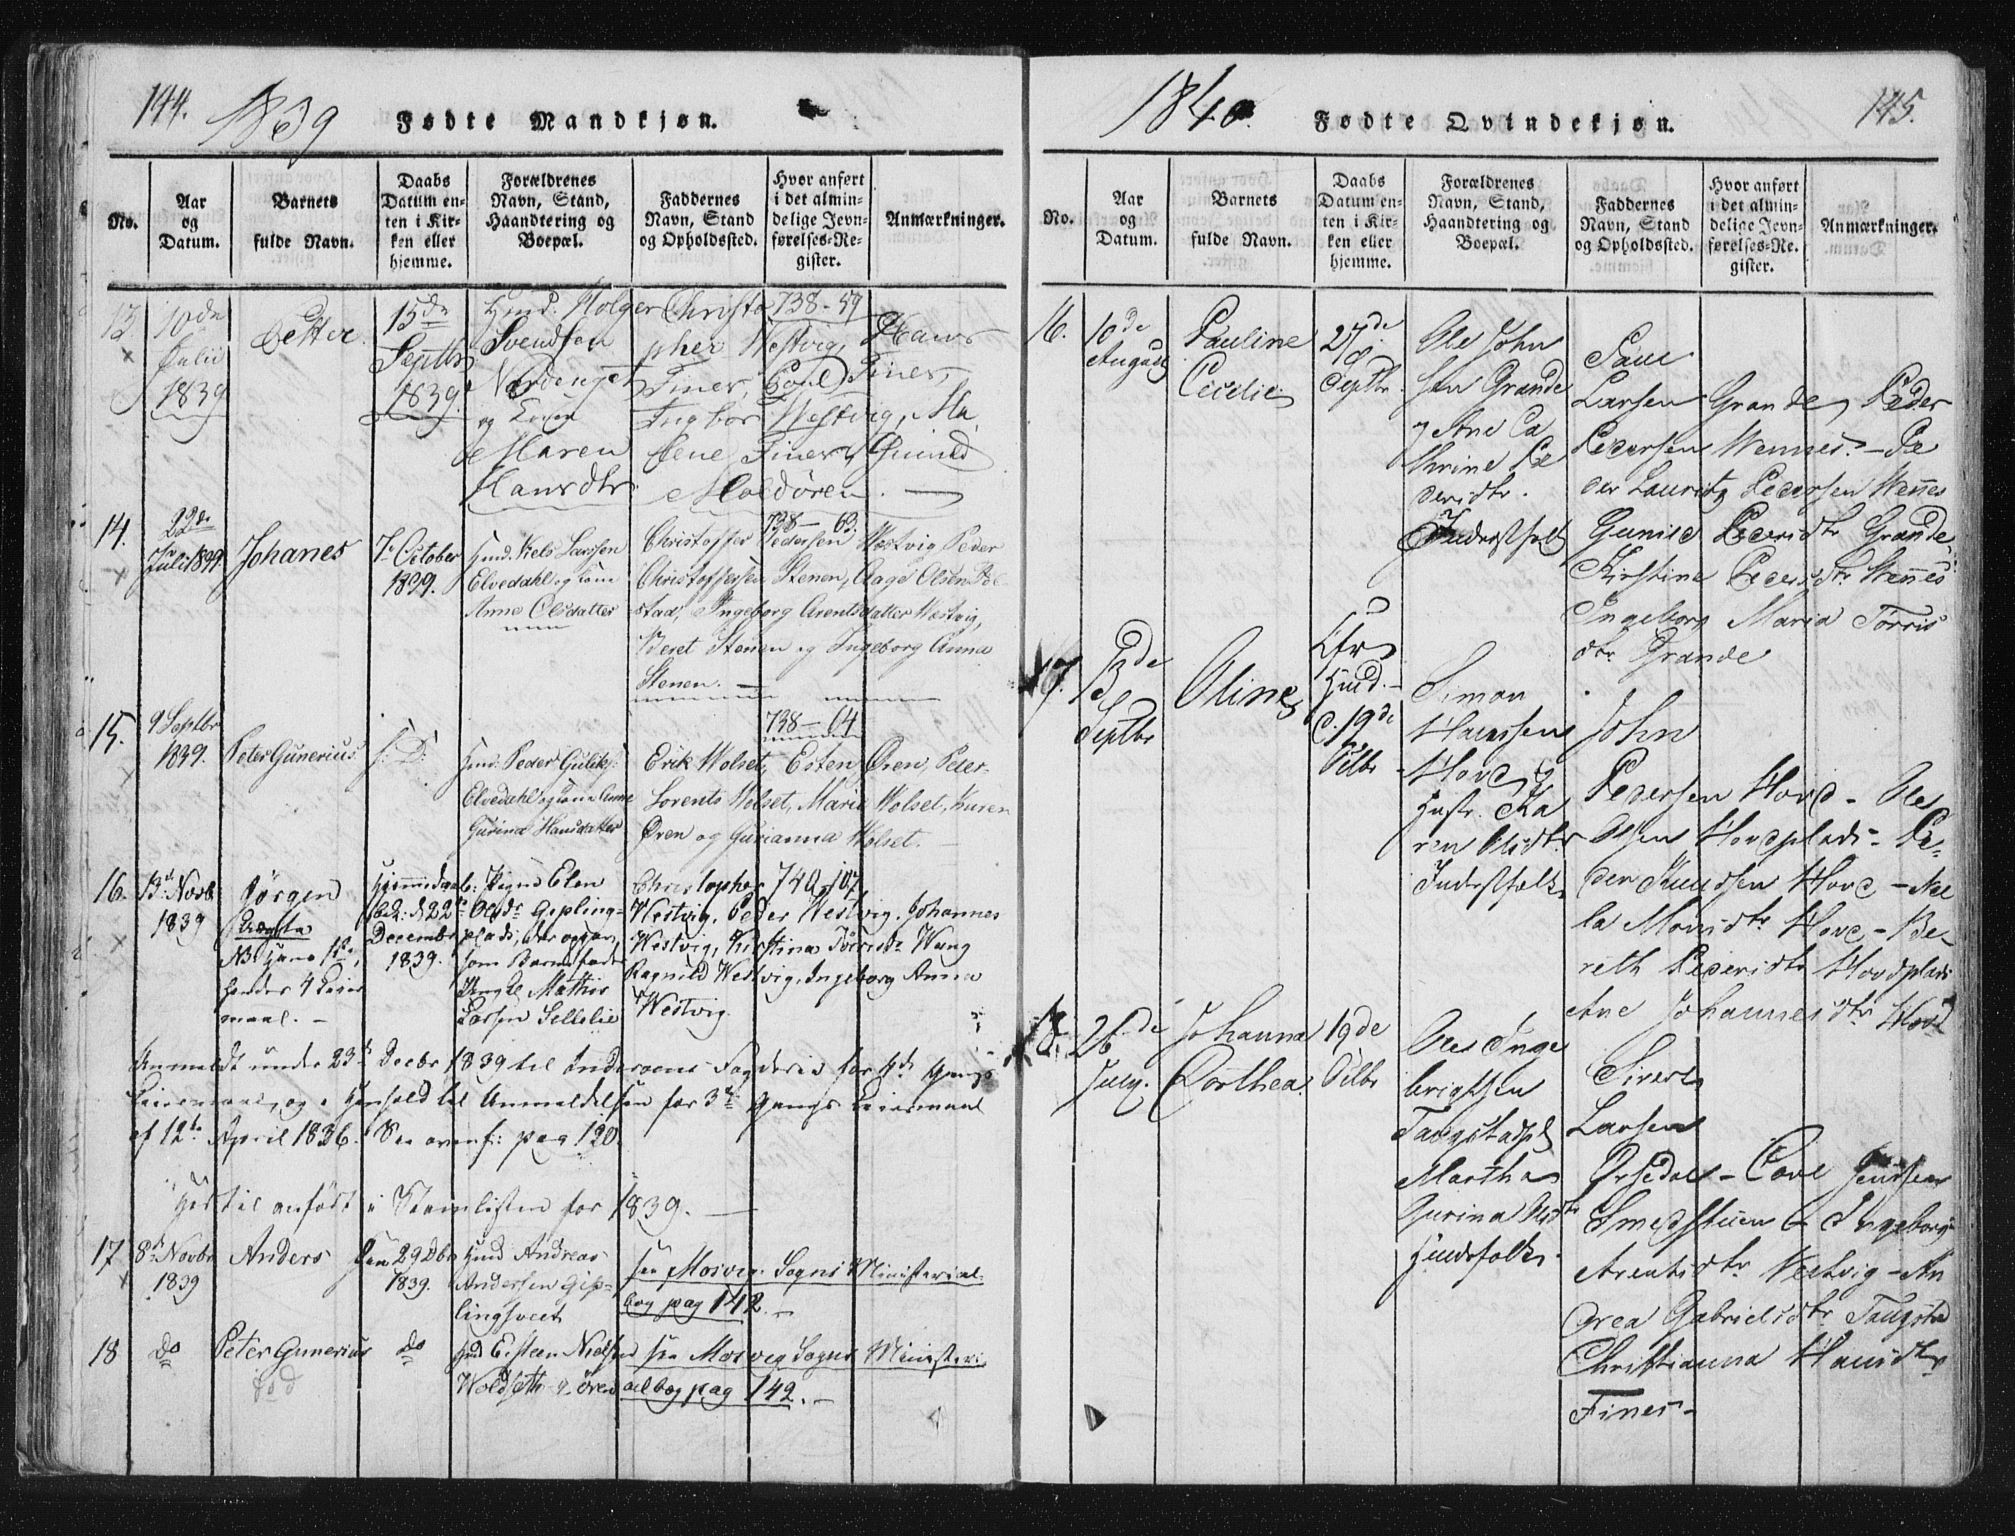 144.
1839
Fødte Mandkjøn.
No.
Aar
og
Datum.
Barnets
fulde Navn.
Daabs
Datum en-
ten i Kir-
ken eller
hjemme.
Forældrenes
Navn, Stand,
Haandtering og
Boepæl.
Faddernes
Navn, Stand
og Opholdssted.
Hvor anført
i det almin-
delige Jevn-
førelses-Re-
gister.
Anmærkninger.
13
10de
Julii
1839
Petter
15de
Septbr
1839.
Svendsen
og Kone
Maren
Hansdtr.
Christo 738-59
pher Westvig, Hans
Finer, Poul Finer,
Westvig, Ma
lene Finer, Gunild
Moldören. —
14.
22de
Juli 1839.
Johanes
7de October
1839.
Hmd. Niels Larssen
Elvedahl og Kone
Anne Olsdatter
738 — 63.
Christoffer Pedersen Westvig, Peder
Christoffersen Stenen, Aage Olsen
stad, Ingeborg Arentsdatter Westvig,
Beret Stenen og Ingeborg Anna
Stenen. —
15.
9 Septbr
1839.
Peter Gunerius
s: D:
Hmd. Peder Gulik:
Elvedahl og Kone Anne
Gurina Hansdatter
738 — 64
Erik Wolset, Esten Øren, Peter
Lorents Wolset, Marie Wolset, Karen
Øren og Gurianna Wolset. —
16.
13de Novbr
1839
Jørgen
NB
4 Leier
maal. —
22de
December
1839.
Pigen Elen
Olsdr Gipling-
plads, der opgav
som Barnefader
Ungk. Mathis
Larsen Sellelie
Christopher 740-107
Westvig, Peder Westvig, Johannes
Westvig, Kirstina Wang
Ragnild Westvig, Ingeborg Anna
Westvig.
Anmeldt under 23de Decbr 1839 til Inderøens Fogderie for 4de Gangs
Leiermaal, og i Henhold til Anmeldelsen for 3de Gangs Leiermaal
af 12te April 1836. See ovenf: pag 120.
Hertil anført i Stamlisten for 1839. —
17
8de Novbr
1839
Anders
den 29 Dbr
1839.
Hmd Andreas
Andersen Gip-
lingsveet
see Mosvig Sogns Ministerial
bog pag 142. —
18
do
Peter Gunerius
død
do
Hmd Eisten Nielsen
Woldseth
see Mosvig Sogns Ministeri
albog pag 142. —
1840.
Fødte Qvindekjøn.
145.
No.
Aar
og
Datum.
Barnets
fulde Navn.
Daabs
Datum en-
ten i Kir-
ken eller
hjemme.
Forældrenes
Navn, Stand,
Haandtering og
Boepæl.
Faddernes
Navn, Stand
og Opholdssted.
Hvor anført
i det almin-
delige Jevn-
førelses-Re-
gister.
Anmærkninger.
16.
10de
August
Pauline
Cecilie
27de
Septbr.
Ole John
sen Grande
og Ane Ca
thrine Pe
dersdtr.
Inderstfolk
Paul
Larsen Grande, Peder
Pedersen Wennes. — Pe
der Lauritz Pedersen Wennes
Gunild Pedersdtr Grande
Kirstine Pedersdtr Wennes
Ingeborg Maria Tørris
dtr Grande
17.
13de
Septbr
Oline
Hmd. —
d. 19de
Octbr
Simon
Hanssen
Hovd og
Hustr. Ka
ren Olsdtr
Inderstfolk
John
Pedersen Hovd — Ole
Olsen Hovdplads — Pe-
der Knudsen Hovd —
Hovd — Be-
reth Pedersdtr Hovdplads
Ane Johannesdtr Hovd
18.
26de
July.
Johanna
Dorthea
19de
Octbr
Ole Inge
brigtsen
Tangstadpl
Martha
Gurina Olsdtr
Huusfolk.
Sivert
Larsen
Ørsedal — Povl Jenssen
Smedstuen & Ingeborg
Arentsdtr Vestvig — An
drea Gabrielsdtr Tangstad
Christianna Hansdtr
Fines —